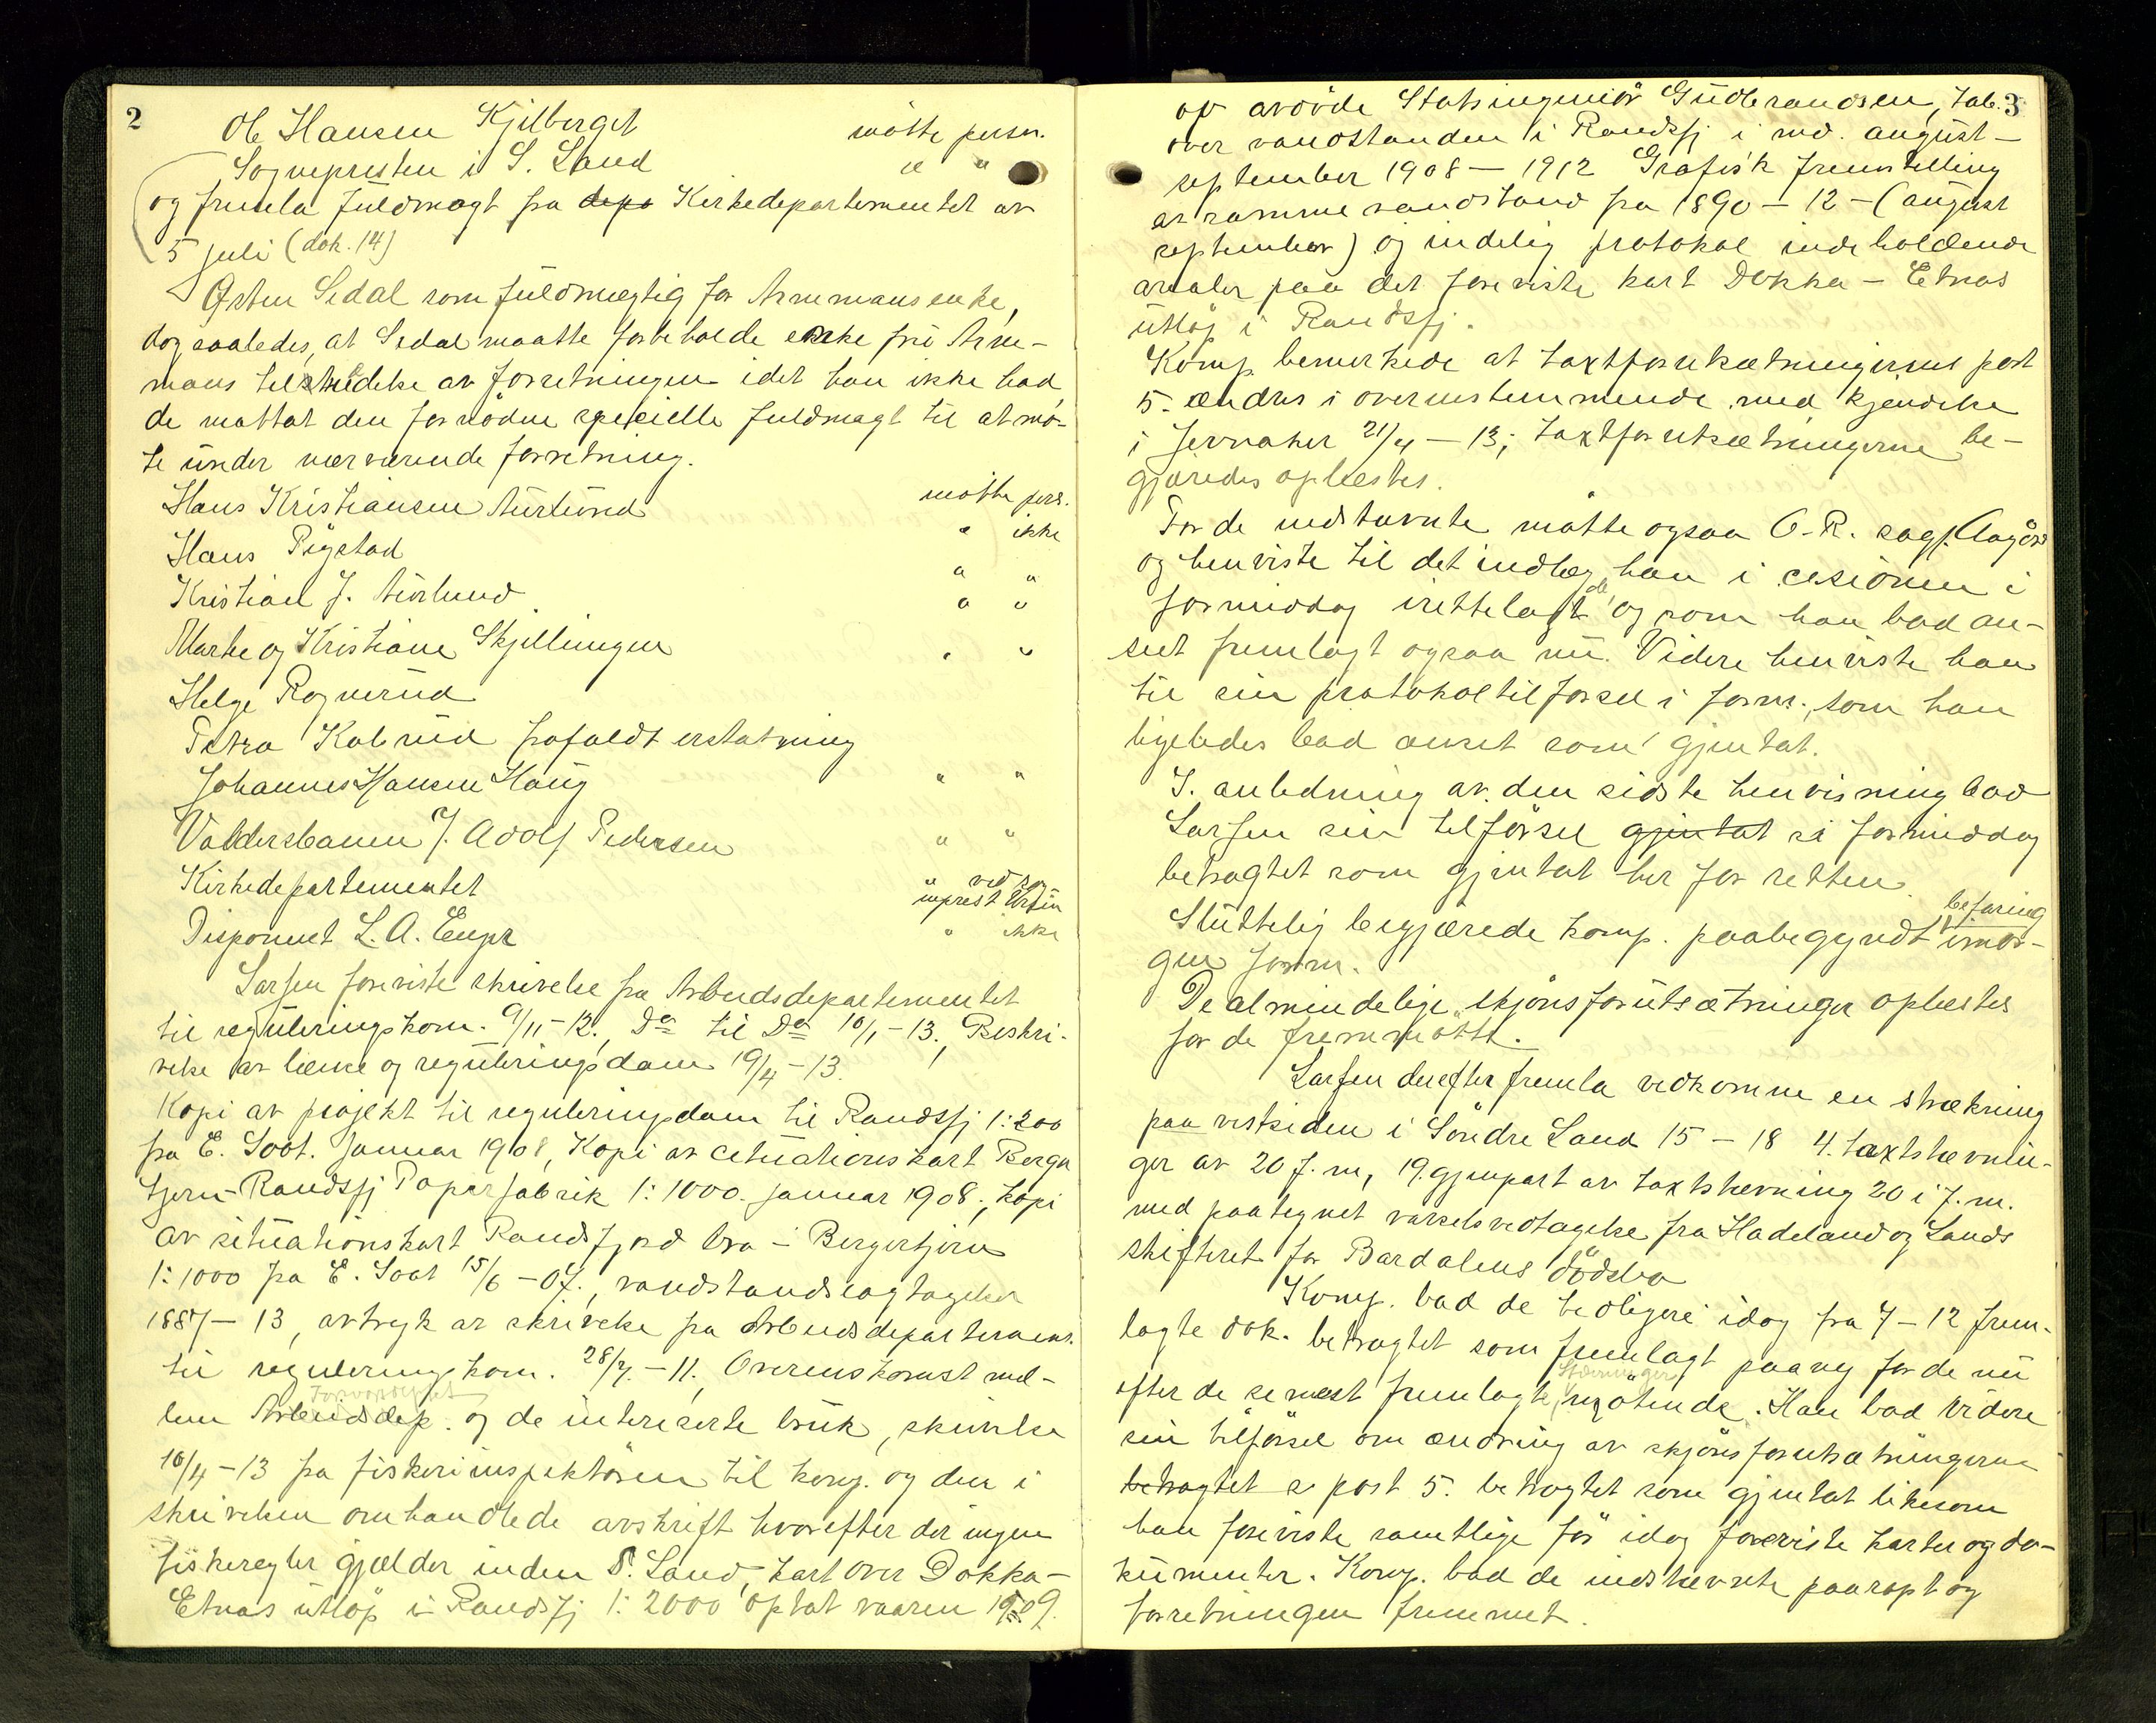 2
Ole Hansen Kjilberget møtte person.
Sognepresten i S. Land " "
og fremla fuldmagt fra depa Kirkedepartementet av
5 juli (dok. 14)
Østen Sedal som fuldmægtig for Arnemans enke,
dog saaledes, at Sedal maatte forbeholde enke fru Arne-
mans tilstedelse av forretningen idet han ikke had
de mottat den fornødne specielle fuldmagt til at mø-
te under nærværende forretning.
Hans Kristiansen Aurlund møtte pers.
Hans Rigstad " ikke
Kristian J. Aurlund " "
Marte og Kristiane Skjellingen " "
Helge Rognerud " "
Petra Kolrud frafaldt erstatning
Johannes Hansen Haug " "
Valdersbanen f. Adolf Pedersen " "
Kirkedepartementet " ved sog
neprest
Disponent L. A. Enger " ikke
Larsen foreviste skrivelse fra Arbeidsdepartementet
til reguleringskom. 9/11-12., Do til Do 10/1-13., Beskri-
velse av lense og reguleringsdam 19/4-13.
Kopi av projekt til reguleringsdam til Randsfj 1:200
fra E. Soot. januar 1908, Kopi av cituationskart Berger
tjern-Randsfj Papirfabrik 1:1000. januar 1908, kopi
av situationskart Randsfjord bro - Bergertjern
1:1000 fra E. Soot 15/6-07., vandstandsiagtagelser
1887-13, avtryk av skrivelse fra Arbeidsdepartement.
til reguleringskom. 28/7.-11. Overenskomst mel-
Forvarsdeptet
lem Arbeidsdep. og de intereserte bruk, skrivelse
16/4-13 fra fiskeriinspektøren til komp. og den i
skrivelsen omhandlede avskrift hvorefter der ingen
fiskeregler gjælder inden S. Land, kart over Dokka-
Etnas utløp i Randsfj 1:2000 optat vaaren 1909.
3
av avdøde Statsingeniør Gudbrandsen, tab.
over vandstanden i Randsfj i md. august-
september 1908-1912 Grafisk fremstilling
av samme vandstand fra 1890-12-(august
september) og endelig protokol indeholdende
arealer paa det foreviste kart Dokka-Etnas
utløp i Randsfj.
Komp bemerkede at taxtforutsætningernes post
5. ændres i overenstemmende med kjendelse
i Jevnaker 21/4-13; taxtforutsætningerne be-
gjæredes oplæstes.
For de indstævnte møtte ogsaa O.R. sagf. Aagaard
og henviste til det indlæg han i cesionen i
formiddag irettelagt og som han bad an-
seet fremlagt ogsaa nu. Videre henviste han
til sin protokoltilførsel i form., som han
ligeledes bad anset som gjentat.
I. anledning av den sidste henvisning bad
Larsen sin tilførsel gjentat si formiddag
betragtet som gjentat her for retten.
befaring
Sluttelig begjærede komp. paabegyndt imor-
gen form.
De almindelige skjønsforutsætninger oplæstes
for de fremmøtte.
Larsen derefter fremla vedkomne en strækning
paa vestsiden i Søndre Land 15-18 4. taxtstævnin-
ger av 20 f. m, 19. gjenpart av taxtstævning 20 i f. m.
med paategnet varselsvedtagelse fra Hadeland og Lands
skifteret for Bardalens dødsbo
Komp. bad de tidligere idag fra 7-12 frem-
lagte dok. betragtet som fremlagt paany for de nu
Stævninger
efter de senest fremlagte møtende. Han bad videre
sin tilførsel om ændring av skjønsforutsætningerne
betragtet s post 5. betragtet som gjentat likesom
han foreviste samtlige før idag foreviste karter og do-
kumenter. Komp. bad de indstævnte paaropt og
forretningen fremmet.